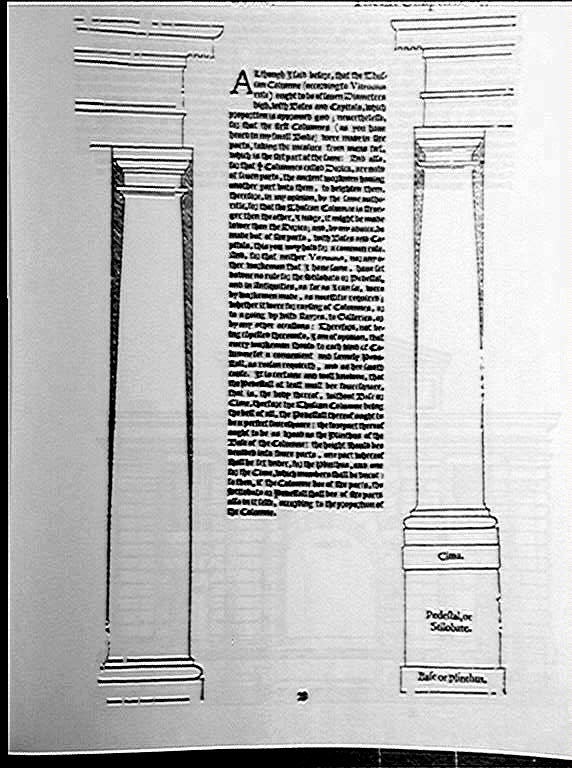 Although I said before, that the Thus-
can Columne (according to Vitruuius
rule) ought to be of seuen Diameters
high, with Bases and Capitals, which
proportion is approued good; neuerthelesse,
for that the first Columnes (as you haue
heard in my small Booke) were made in sixe
parts, taking the measure from mans foot,
which is the sixt part of the same: And also,
for that ye Columnes called Dorica, are now
of seuen parts, the ancient workemen hauing
another part vnto them, to heighten them,
therefore, in my opinion, by the same autho-
ritie, for that the Thuscan Columne is stron-
ger then the other, I iudge, it might be made
lower than the Dorica; and, by my aduice, be
made but of sixe parts, with Bases and Ca-
pitals, this you may hold for a common rule.
Also, for that neither Vitruuius, nor any o-
ther workeman that I haue seene, haue set
downe no rule for the Stilobate or Pedestal,
and in Antiquities, as far as I can see, were
by workemen made, as necessitie required;
whether it were for raysing of Columnes, or
to a going vp with Stayres, to Galleries, or
by any other occasions: Therefore, not be-
ing thereunto, I am of opinion, that
euery workeman should to each kind of Co-
lumne set a conuenient and seemely Pede-
stall, as reason requireth, and as her sauth
cause. It is certaine and well knowne, that
the Pedestall at least must bee foure square,
that is, the body thereof, without Base or
Cime, therefore the Thuscan Columne being
the best of all, the Pedestall thereof ought to
be a perfect foure square: the forepart thereof
ought to be as broad as the Plinthus of the
Base of the Columne: the height should bee
deuided into foure parts, one part whereof
shall be set vnder, for the Plinthus, and one
for the Cime, which members shall be vncut:
so then, if the Columne bee of sixe parts, the
Stilobate or Pedestall shall bee of sixe parts
also in it selfe, according to the proportion of
the Columne.
Cima.
Pedestal, or
Stilobate.
Base or plinthus.